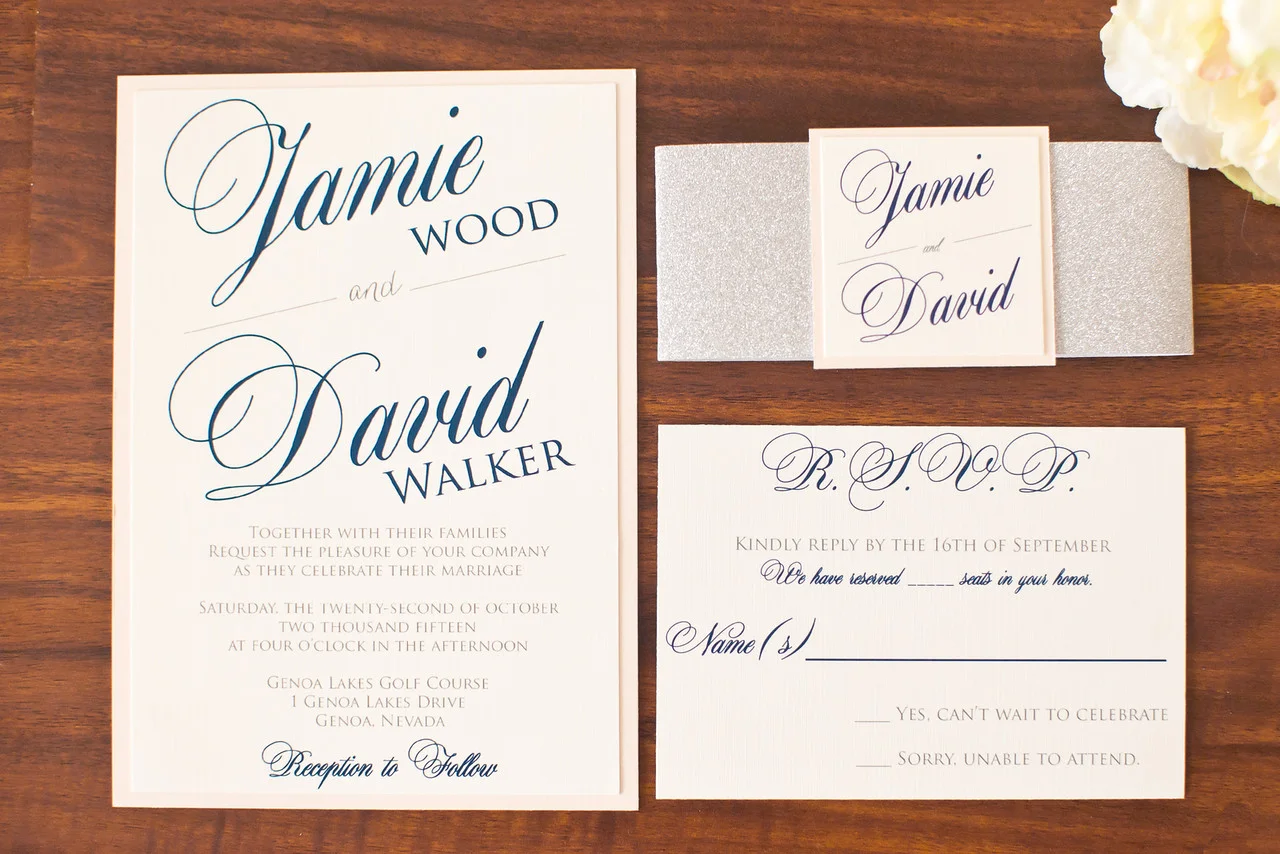 Jamie
WOOD
and
David
WALKER
TOGETHER WITH THEIR FAMILIES
REQUEST THE PLEASURE OF YOUR COMPANY
AS THEY CELEBRATE THEIR MARRIAGE
SATURDAY, THE TWENTY-SECOND OF OCTOBER
TWO THOUSAND FIFTEEN
AT FOUR O'CLOCK IN THE AFTERNOON
GENOA LAKES GOLF COURSE
1 GENOA LAKES DRIVE
GENOA, NEVADA
Reception to Follow
Jamie
and
David
R.S.V.P.
KINDLY REPLY BY THE 16TH OF SEPTEMBER
We have reserved _____ seats in your honor.
Name(s)
___ YES, CAN'T WAIT TO CELEBRATE
___ SORRY, UNABLE TO ATTEND.